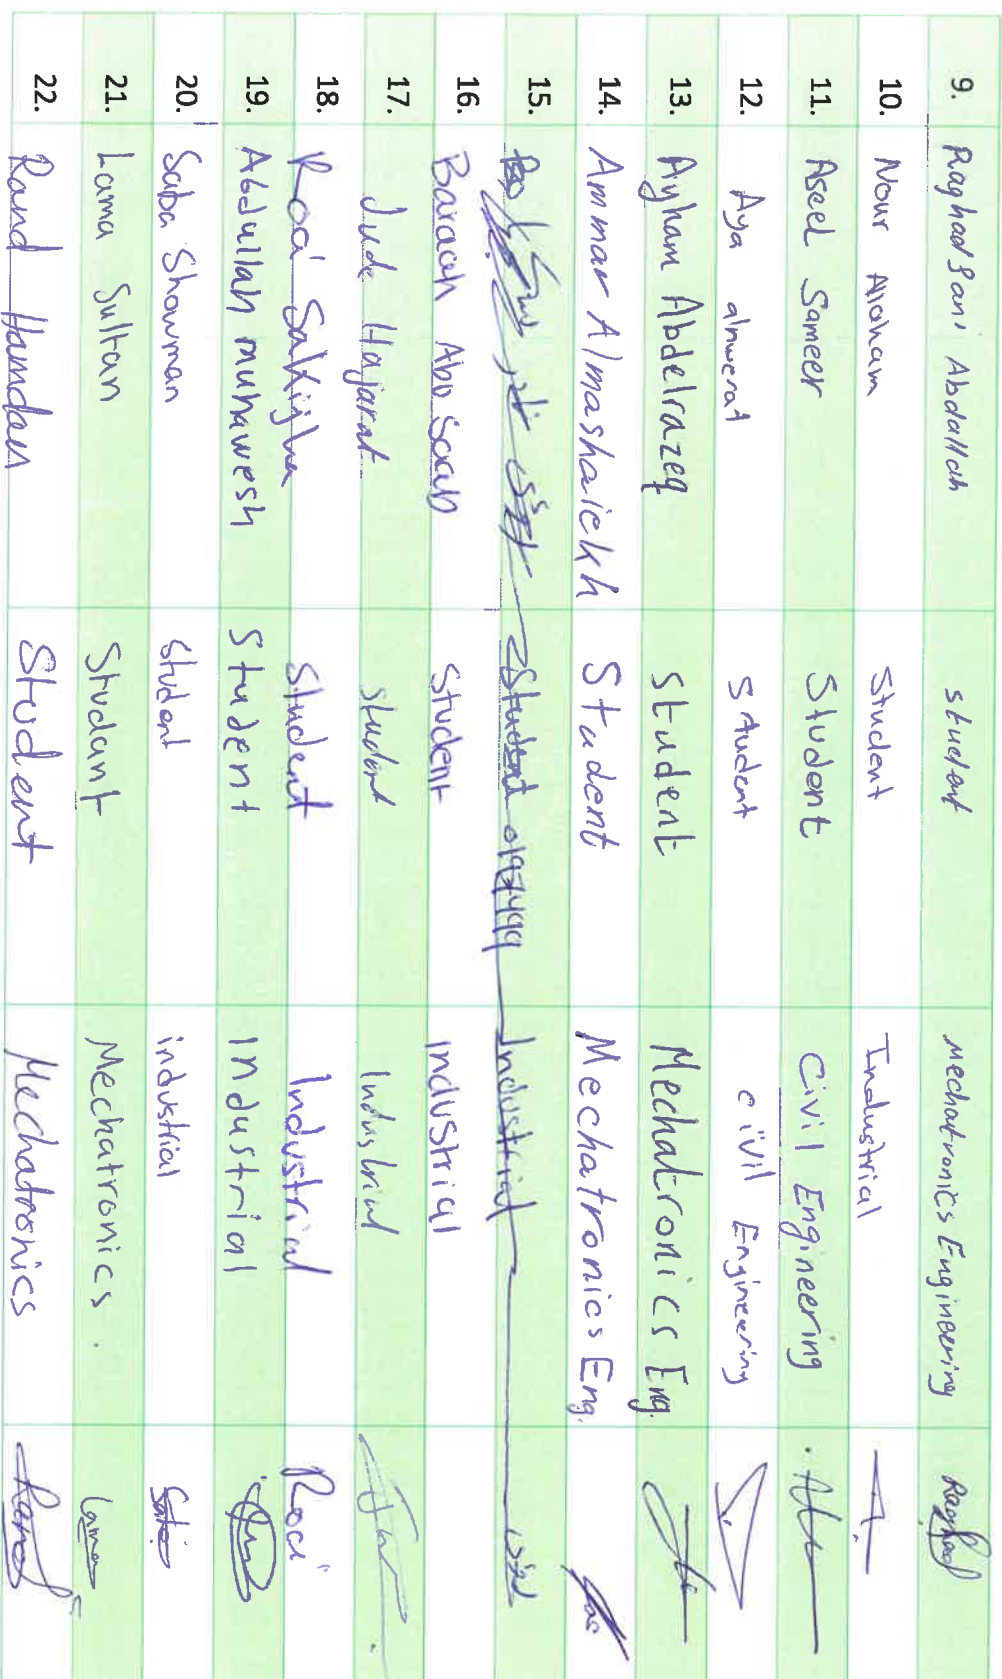 9. Raghad Sani Abdallah student Mechatronics Engineering Raghad
10. Nour Alroham Student Industrial
11. Aseel Sameer Student Civil Engineering
12. Aya alnwerat Student civil Engineering
13. Ayham Abdelrazeq student Mechatronics Eng.
14. Ammar Almashaiekh Student Mechatronics Eng.
15. Student 0197499 Industrial
16. Baraah Abo Saab Student industrial
17. Jude Hajarat student Industrial
18. Roa'a Salkijha Student Industrial
19. Abdullah muhawesh Student Industrial
20. Saba Showman student industrial Saba
21. Lama Sultan Studant Mechatronics. Lama
22. Rand Hamdan Student Mechatronics Rand